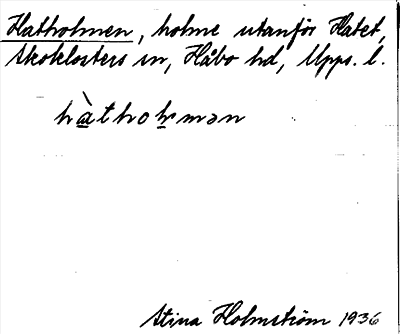 Hatholmen, holme utanför Hatet,
Skoklosters sn, Håbo hd, Upps. l.
hàthoḷmən
Stina Holmström 1936